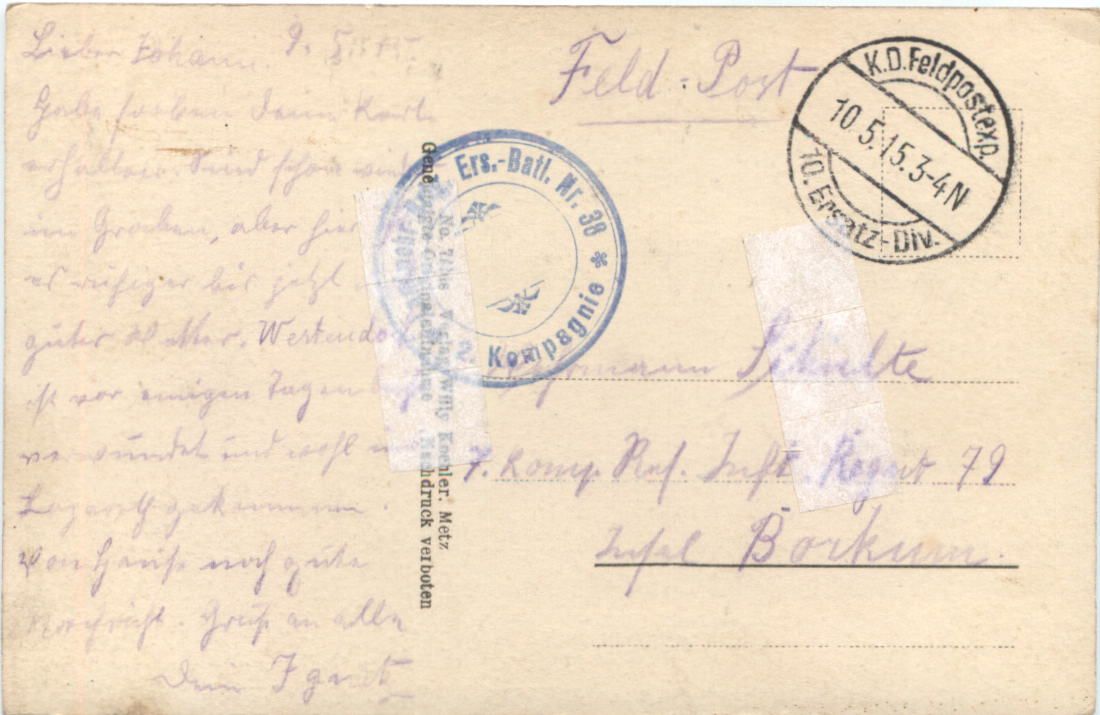 Lieber Johann. 9. 5. 15.
Habe soeben Deine Karte
erhalten. Sind schon wieder
im Graben, aber hier
es ruhiger bis jetzt
gutes Wetter. Westendo
ist vor einigen Tagen
verwundet und wohl
Lazareth gekommen.
Von Hause noch gute
Nachricht. Gruß an alle
Dein Ignatz
Feld-Post
K.D. Feldpostexp.
10.5.15.3-4N
10. Ersatz-Div.
Ers.-Batl. Nr. 38
Kompagnie
No. Verlag Willy Koehler. Metz
Nachdruck verboten
Schulte
7. Komp. Res. Inft. Regmt 79
Insel Borkum.